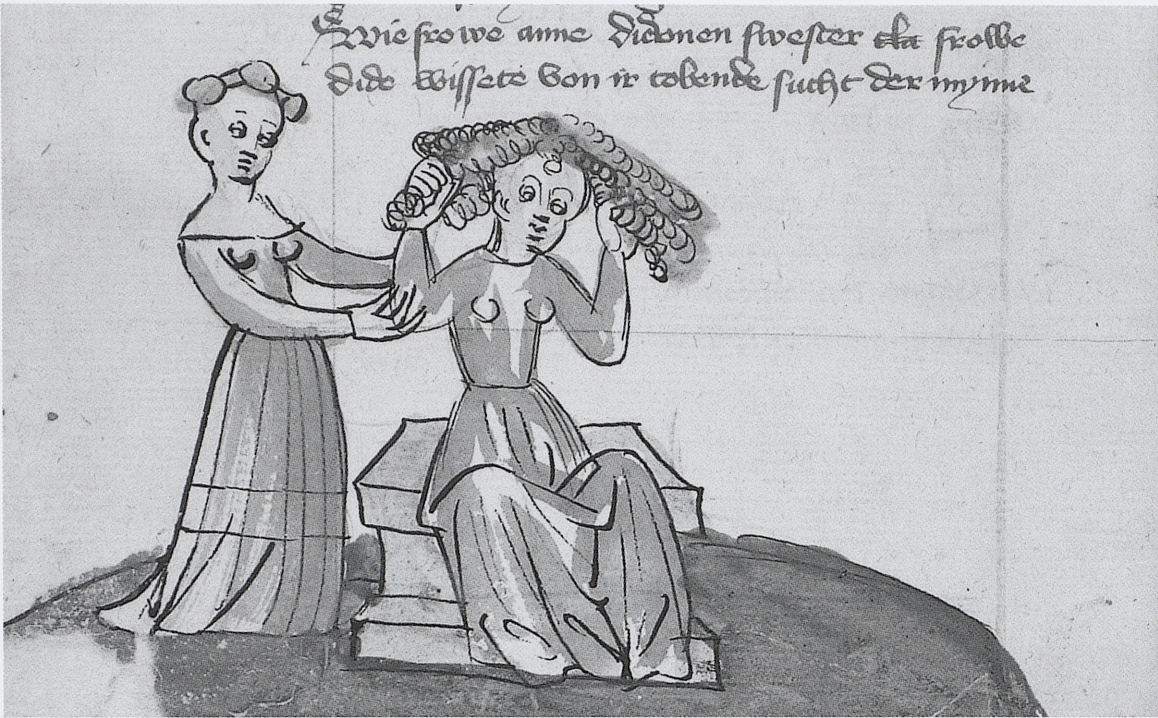 Wie frowe anne didonen swester cla frowe
dido wissete von ir tobende sucht der mynne